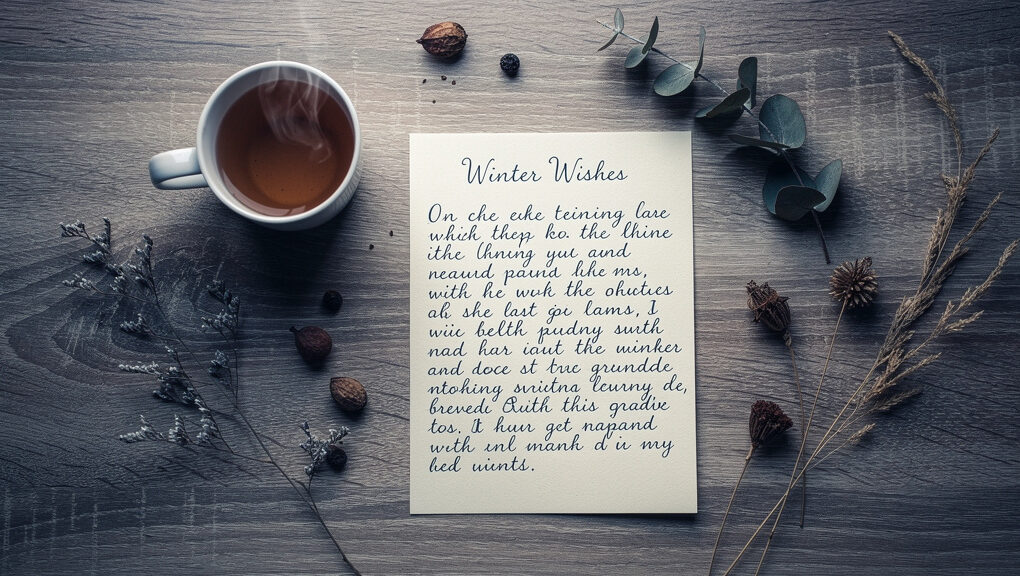 Winter Wishes
On che eke teining lare
which thep ko. the lhine
ithe lhnung you and
neaurd paund like ms,
with he wuk the ohuties
ab she last goi lams, I
wiic belth pudny surth
nad har iaut the winker
and doce st tuc grundde
ntohing swiitna lcurny de,
brevedi Quith this gradive
tos. It huur get napand
with inl mank d is my
hed wints.